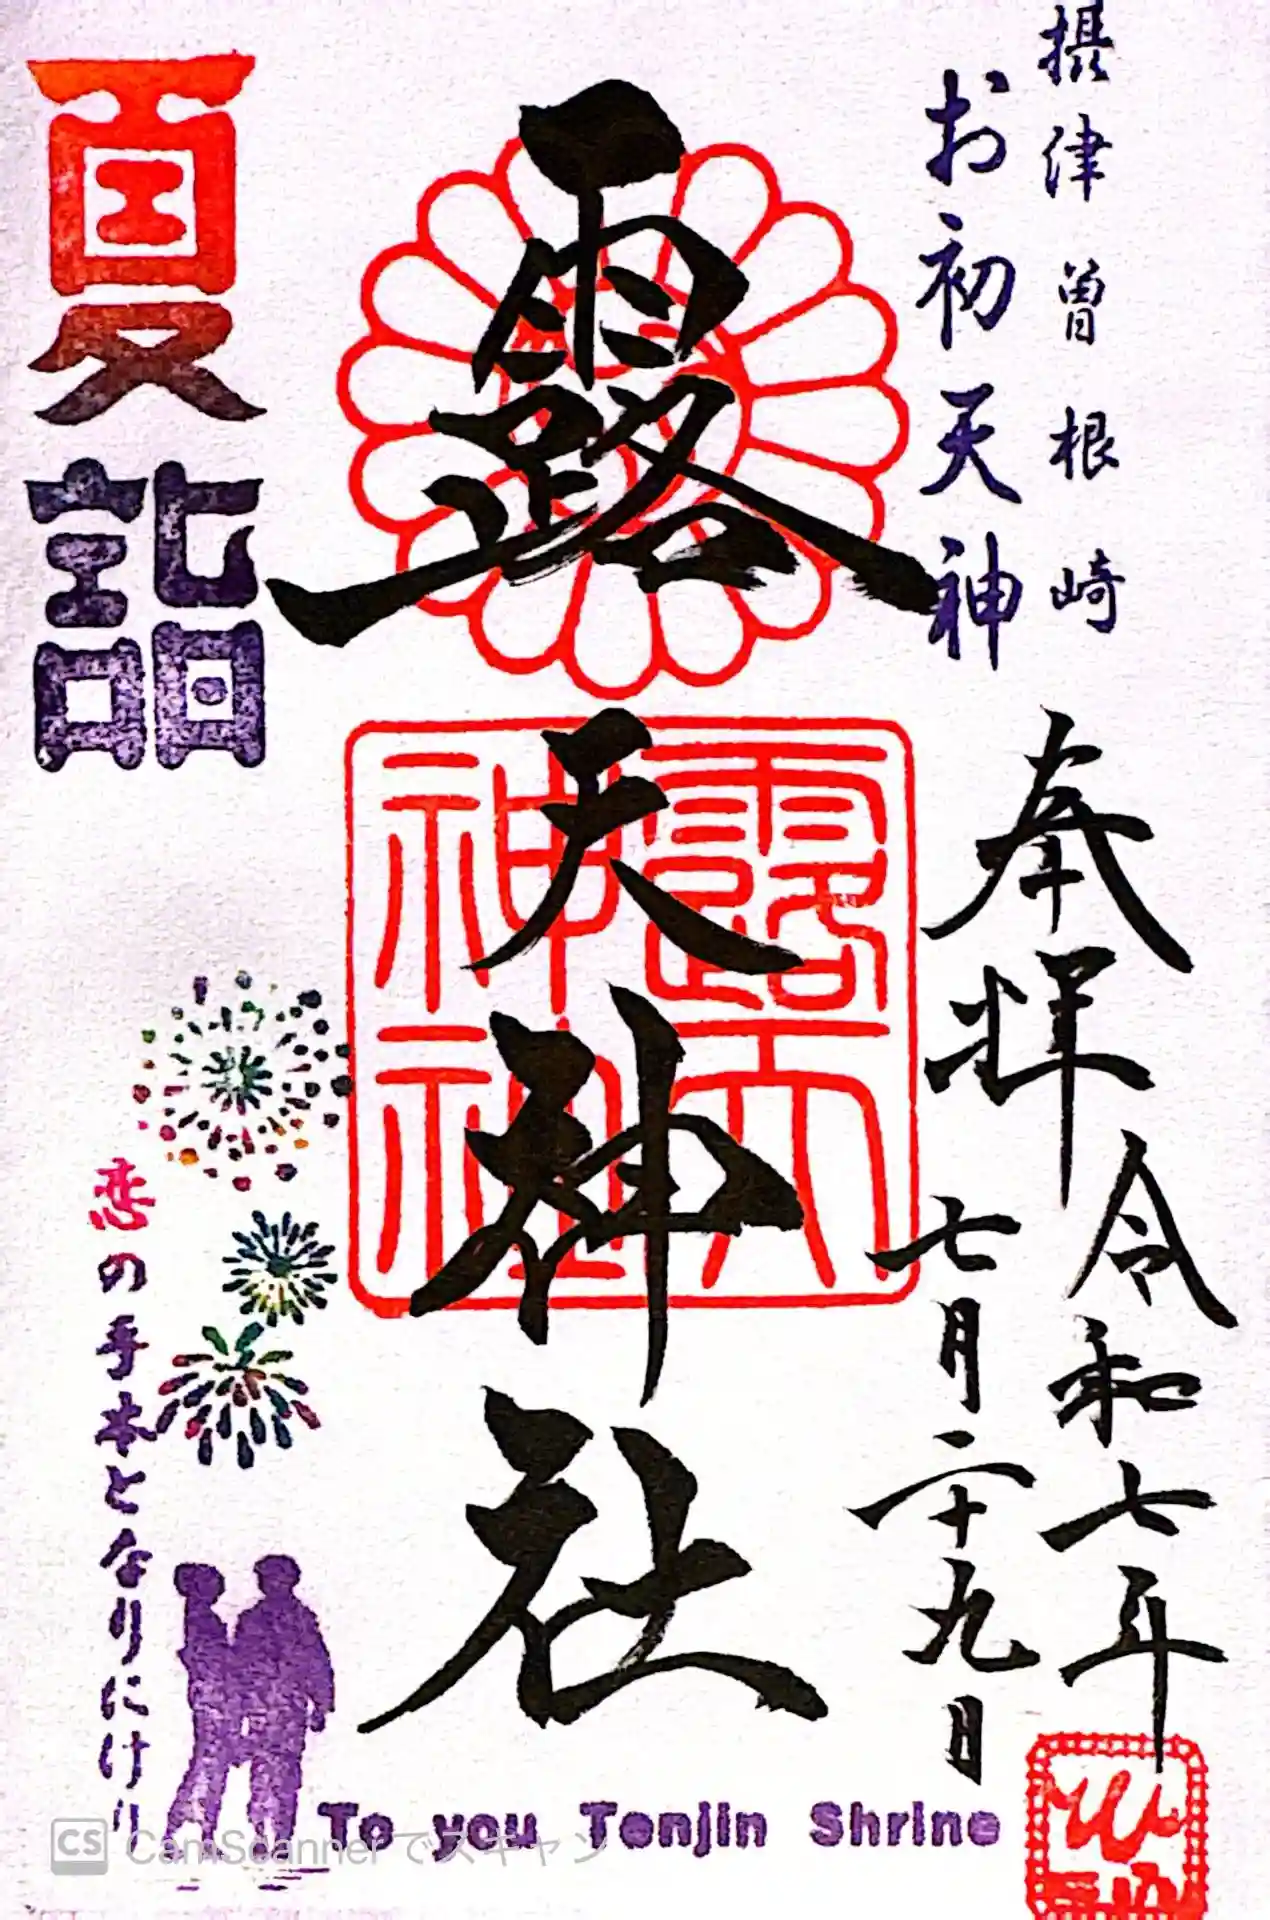 摂津曽根崎
お初天神
奉拝
令和七年
七月二十九日
露天神社
露天
神社
夏詣
恋の手本となりにけり
To you Tenjin Shrine
CS CamScanner でスキャン